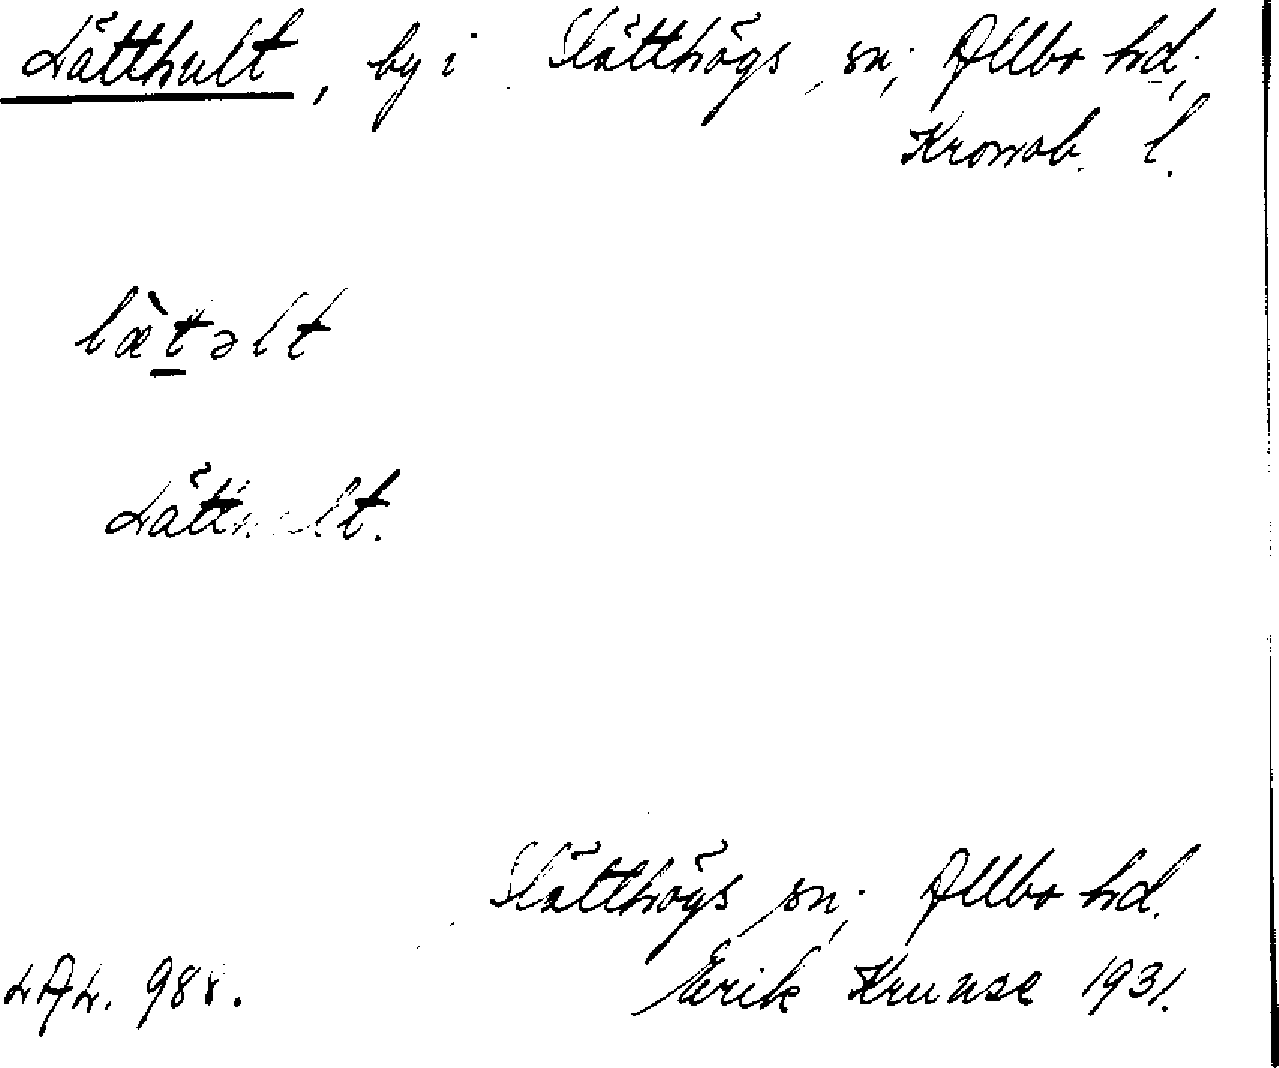 Lätthult, by i Slätthögs sn; Allbo hd;
Kronob. l.
læ̀t̲əlt
Lätthult.
Slätthögs sn; Allbo hd.
LAL. 988. Erik Krunse 1931.